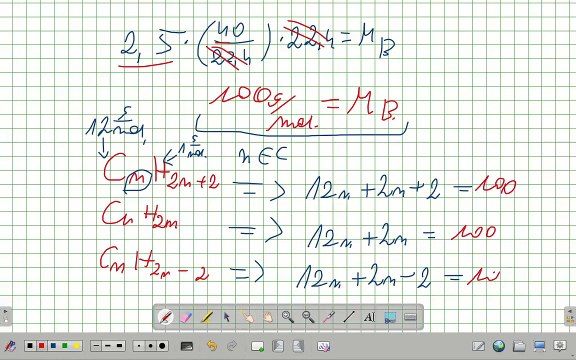 2,5 · (40/22,4) · 22,4 = M_B
100 g/mol. = M_B.
12 g/mol. 1 g/mol. n ∈ C
C_nH_{2n+2} => 12n + 2n + 2 = 100
C_nH_{2n} => 12n + 2n = 100
C_nH_{2n-2} => 12n + 2n - 2 = 10